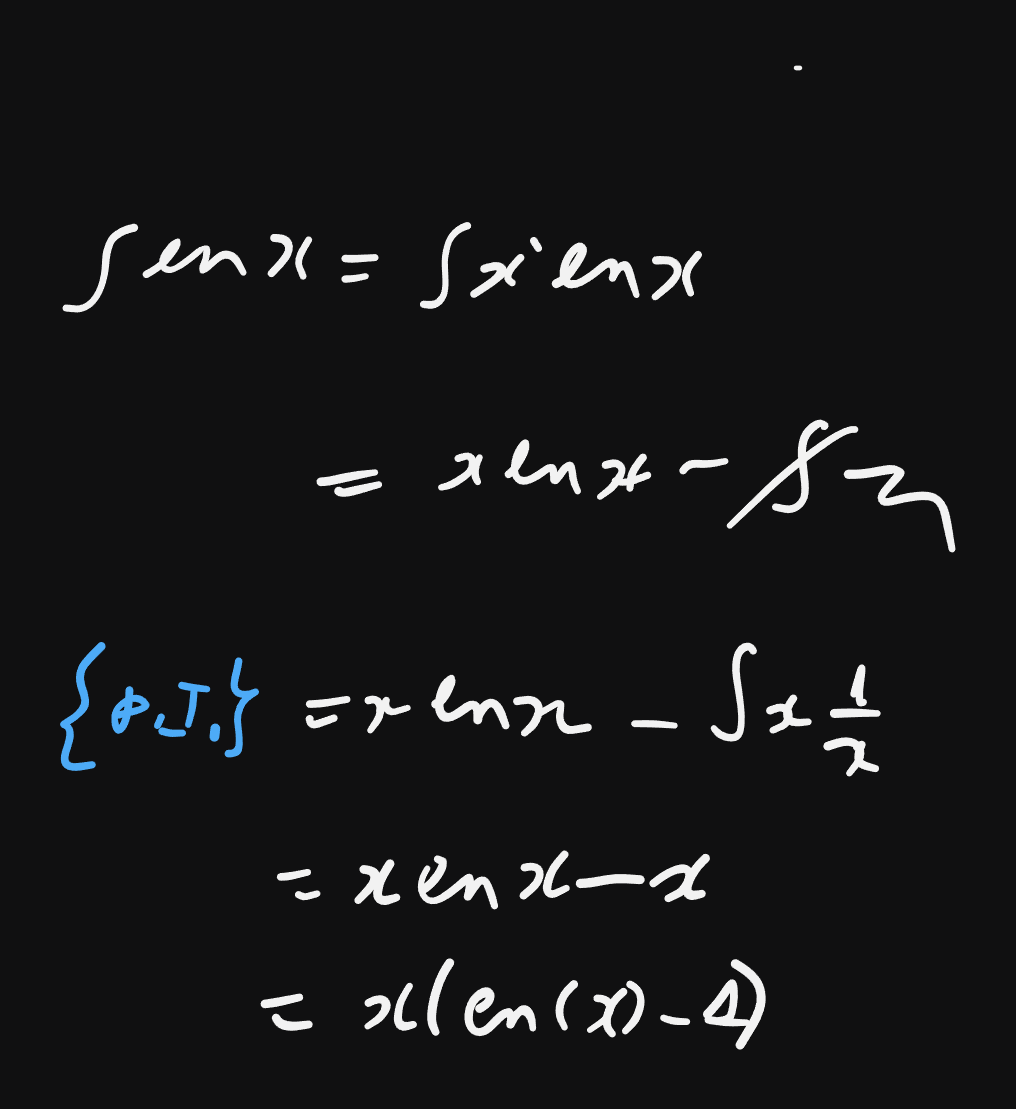 ∫ ln x = ∫ x' ln x
= x ln x -
= x ln x - ∫ x 1/x
= x ln x - x
= x (ln (x) - 1)